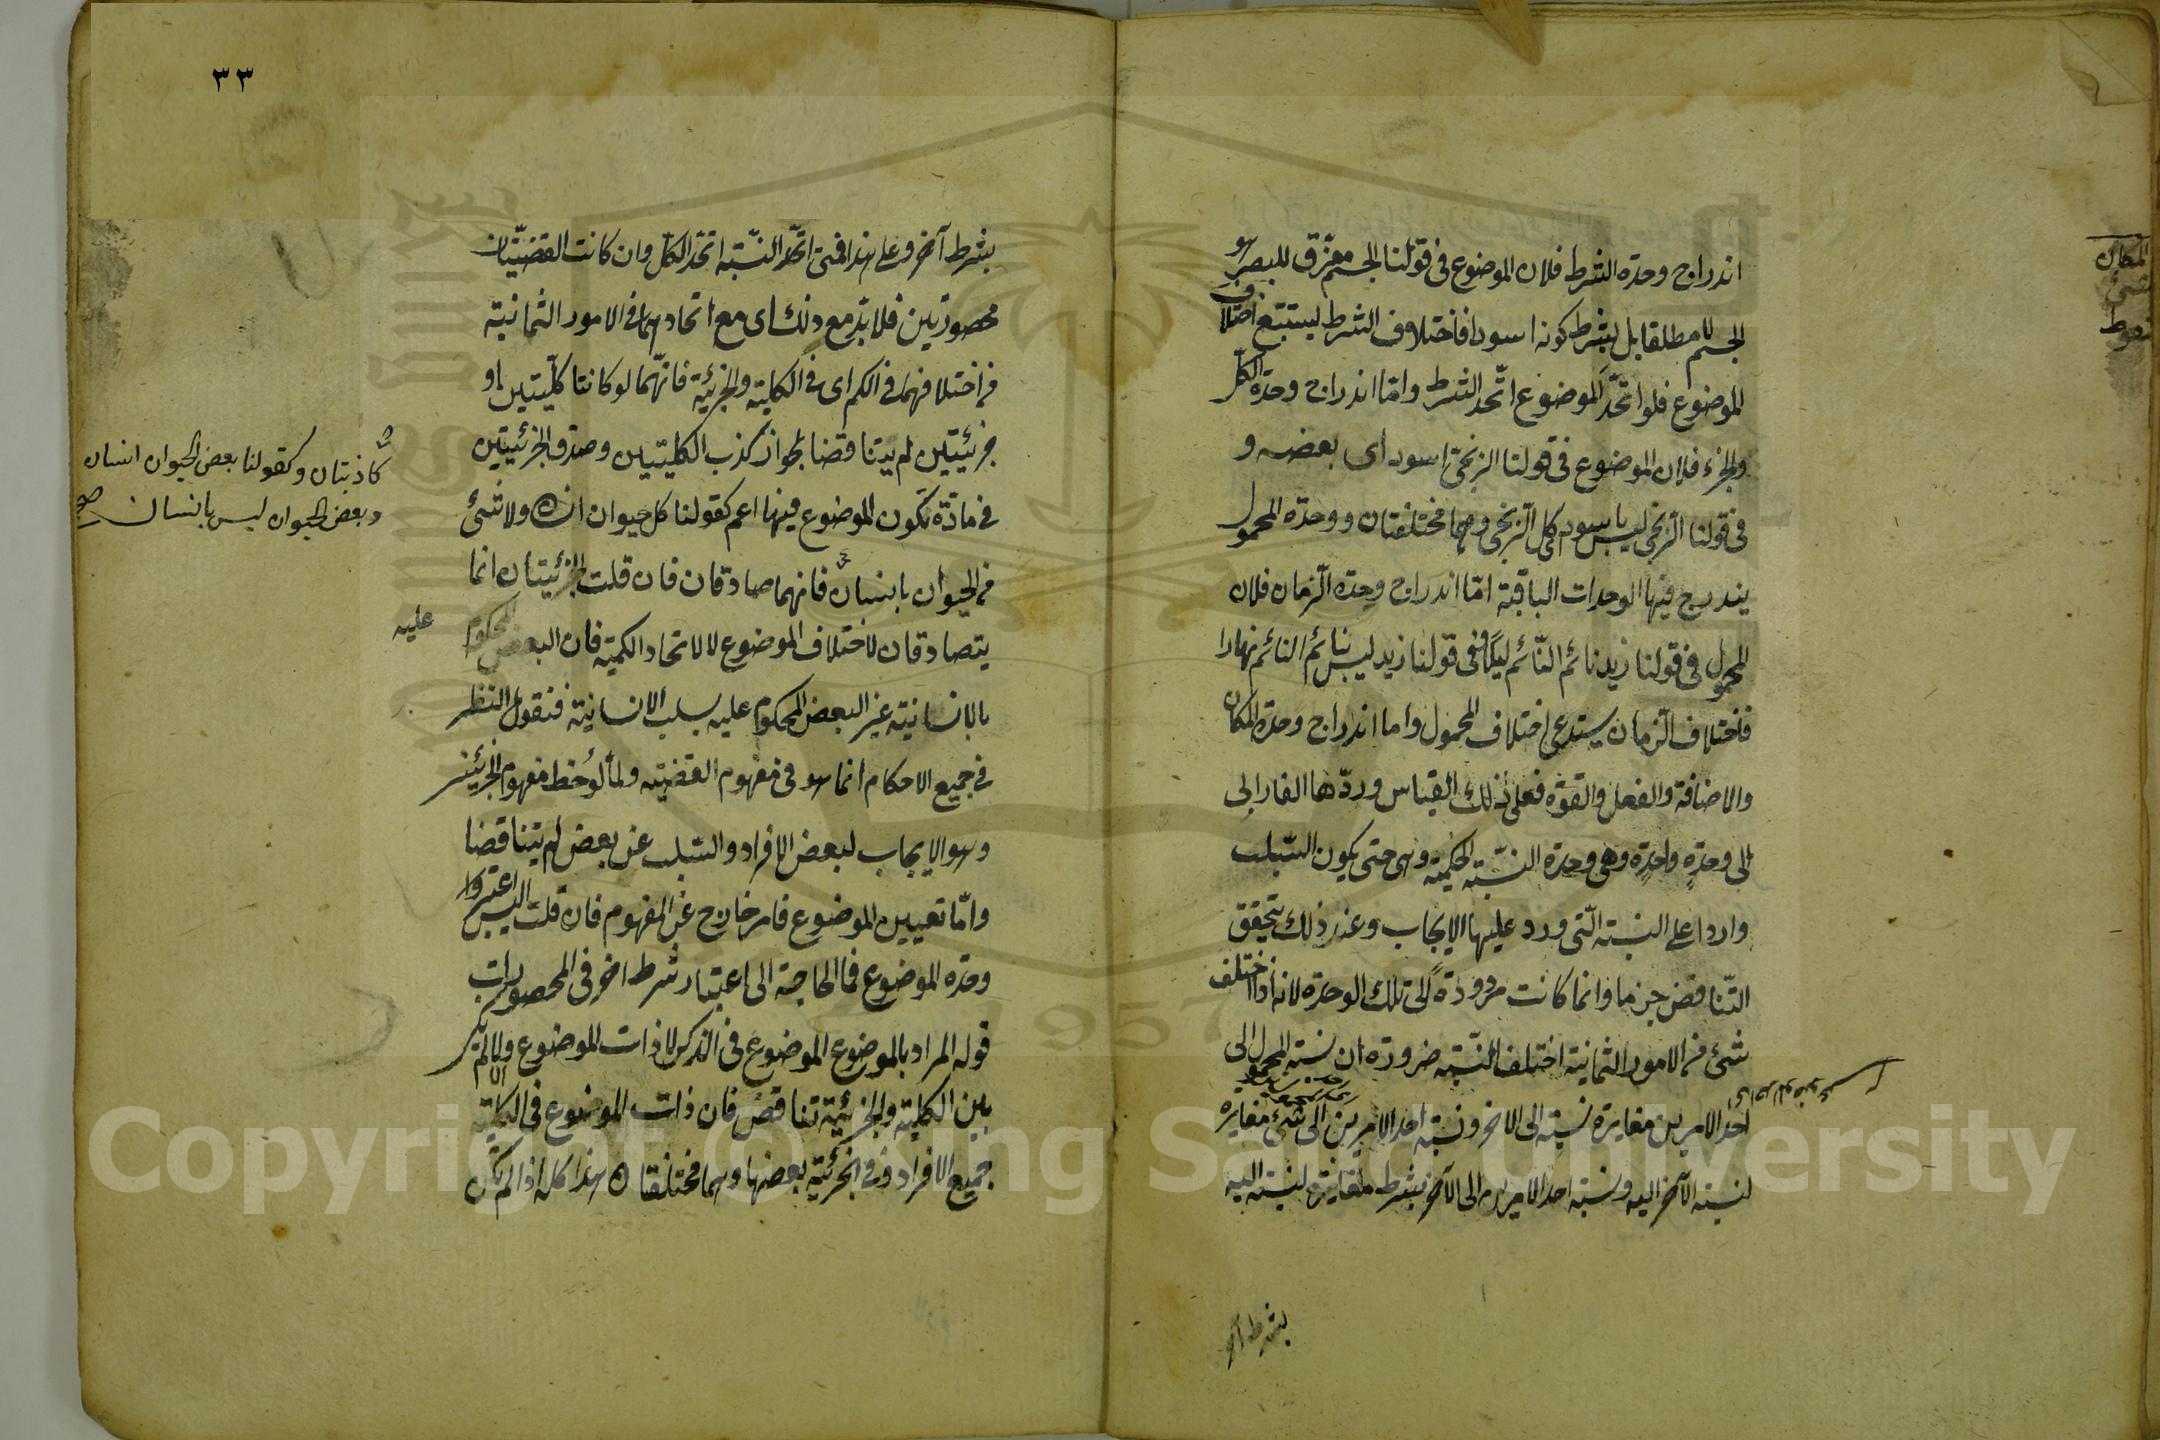 اندراج وحدة الشرط فلان الموضوع فى قولنا الجسم مفرق للبصر هو
الجسم لا مطلقا بل بشرط كونه اسود فاختلاف الشرط يستتبع اختلاف
الموضوع فلو اتحد الموضوع اتحد الشرط واما اندراج وحدة الكل
والجزء فلان الموضوع فى قولنا الزنجى اسود اى بعضه و
فى قولنا الزنجى ليس باسود كل الزنجى وهما مختلفتان ووحدة المحمول
يندرج فيها الوحدات الباقية اما اندراج وحدة الزمان فلان
المحمول فى قولنا زيد نائم النائم ليلا وفى قولنا زيد ليس بنائم النائم نهارا
فاختلاف الزمان يستدعى اختلاف المحمول واما اندراج وحدة المكان
والاضافة والفعل والقوة فعلى ذلك القياس وردها الفارابى
الى وحدة واحدة وهى وحدة النسبة الحكمية وهى حتى يكون السلب
واردا على النسبة التى ورد عليها الايجاب وعند ذلك يتحقق
التناقض جزما وانما كانت مردودة الى تلك الوحدة لانه اذا اختلف
شئ من الامور الثمانية اختلف النسبة ضرورة ان نسبة المحمول الى
احد الامرين مغايرة لنسبته الى الاخر ونسبة احد الامرين الى شئ مغايرة
لنسبة الآخر اليه ونسبة احد الامرين الى الآخر بشرط مغايرة لنسبته اليه
بشرط آخر
المكان
٣٣
بشرط آخر وعلى هذا فمتى اتحد النسبة اتحد الكل وان كانت القضيتان
محصورتين فلا بد مع ذلك اى مع اتحادهما فى الامور الثمانية
من اختلافهما فى الكم اى فى الكلية والجزئية فانهما لو كانتا كليتين او
جزئيتين لم يتناقضا لجواز كذب الكليتين وصدق الجزئيتين
فى مادة تكون الموضوع فيها اعم كقولنا كل حيوان انسان ولا شئ
من الحيوان بانسان فانهما صادقان فان قلت الجزئيتان انما
يتصادقان لاختلاف الموضوع لا لاتحاد الكمية فان البعض المحكوم
عليه
بالانسانية غير البعض المحكوم عليه بسلب الانسانية فنقول النظر
فى جميع الاحكام انما هو فى مفهوم القضية ولما لوحظ مفهوم الجزئيتين
وهو الايجاب لبعض الافراد والسلب عن بعض لم يتناقضا
واما تعيين الموضوع فامر خارج عن المفهوم فان قلت اليس اعتبروا
وحدة الموضوع فما الحاجة الى اعتبار شرط اخر فى المحصورات
قوله المراد بالموضوع الموضوع فى الذكر لا ذات الموضوع والا لم يكن
بين الكلية والجزئية تناقض فان ذات الموضوع فى الكلية
جميع الافراد وفى الجزئية بعضها وهما مختلفتان هذا كله اذا لم تكن
كاذبتان وكقولنا بعض الحيوان انسان
وبعض الحيوان ليس بانسان صح
Copyright © King Saud University
1957